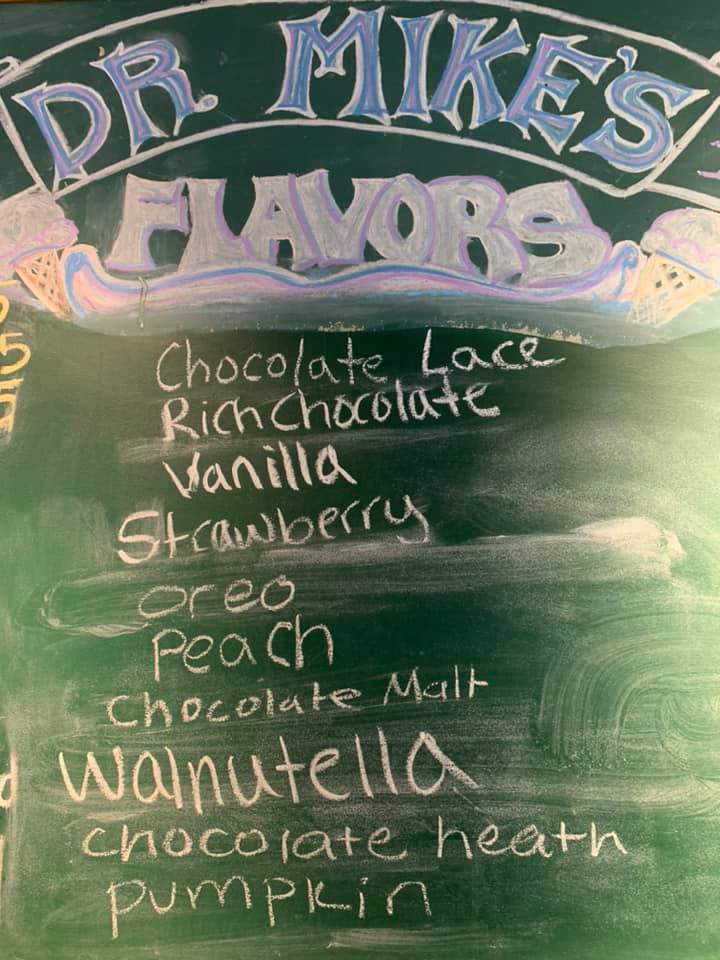 DR. MIKE'S
FLAVORS
Chocolate Lace
Rich Chocolate
Vanilla
Strawberry
oreo
Peach
Chocolate Malt
Walnutella
chocolate heath
pumpkin